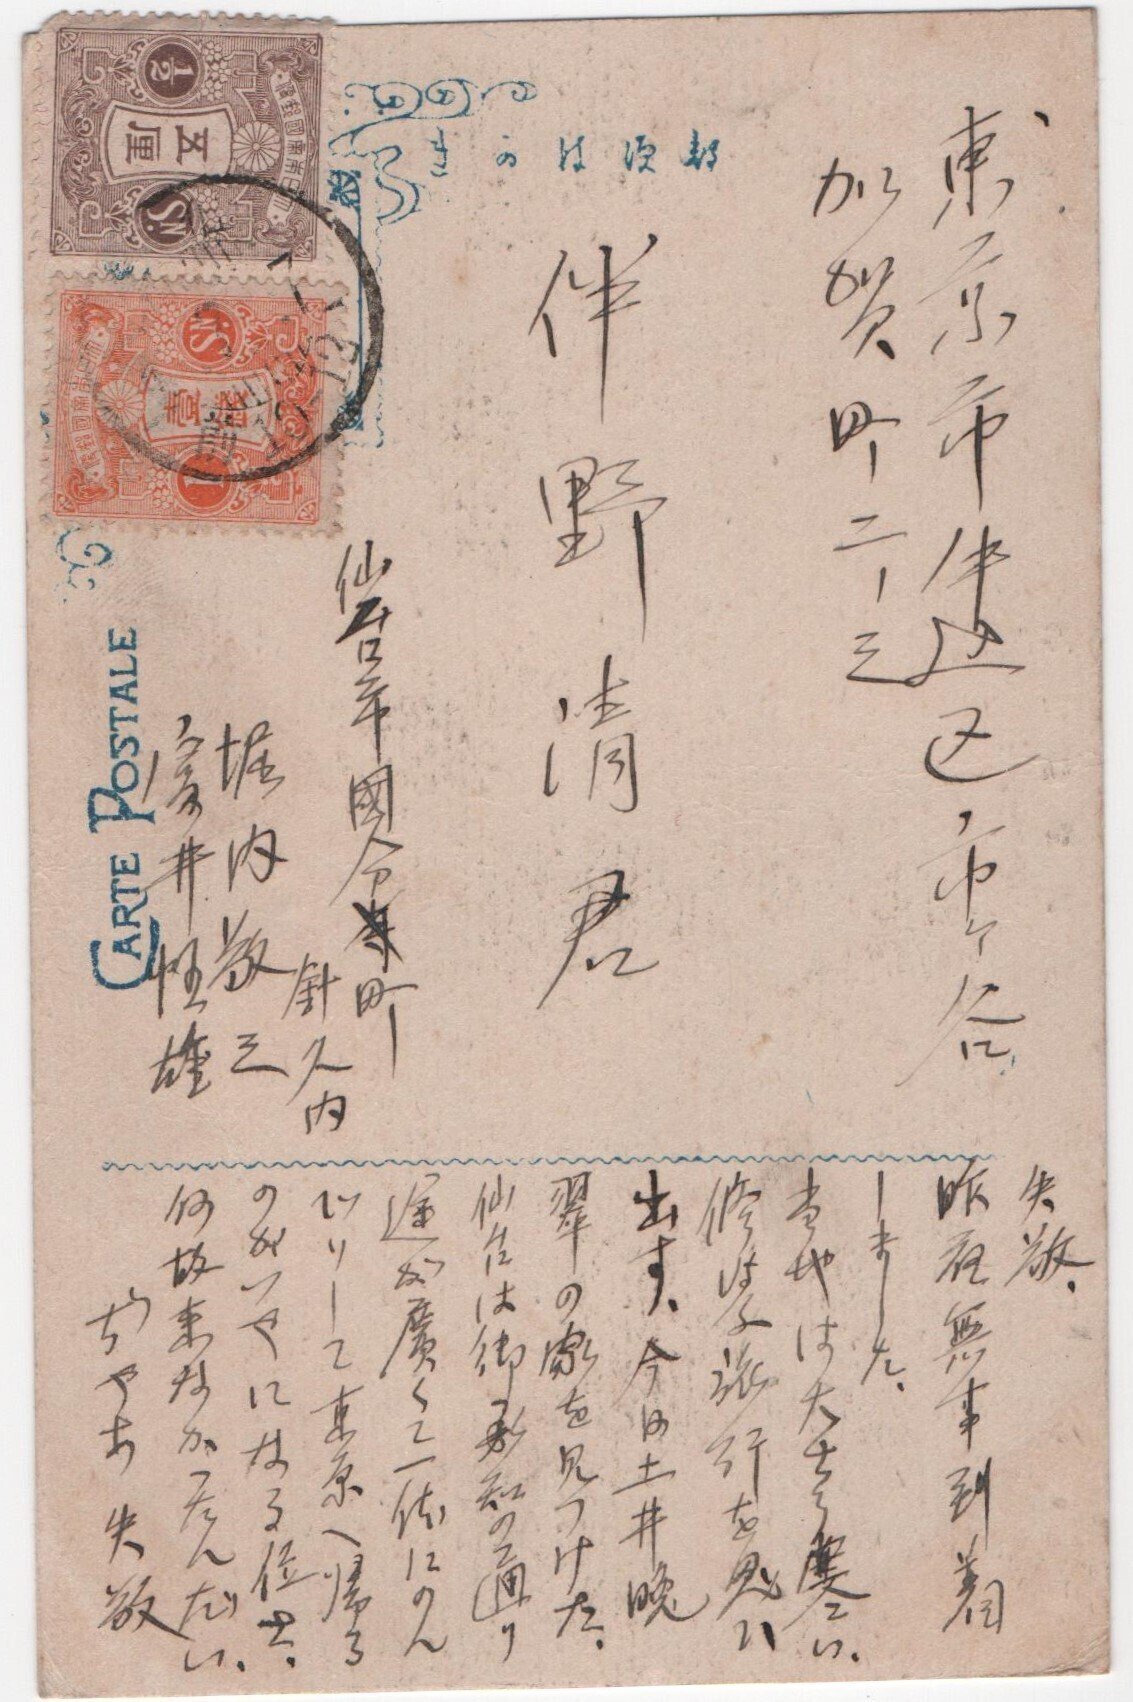 東京市牛込区市ヶ谷
加賀町二ノ三
伴野清君
仙台市國分町
針久内
堀内敬三
井 雄
郵便はかき
CARTE POSTALE
五厘
1/2
SN
大日本帝國郵便
壹銭
1
SN
大日本帝國郵便
失敬、
昨夜無事到着
しました、
当地は大さう寒い、
修学旅行を思ひ
出す、今日土井晩
翠の家を見つけた、
仙台は御承知の通り
道が廣くて一体にのん
びりして東京へ帰る
のがいやになる位だ、
何故来なかったんだい、
ぢやあ 失敬